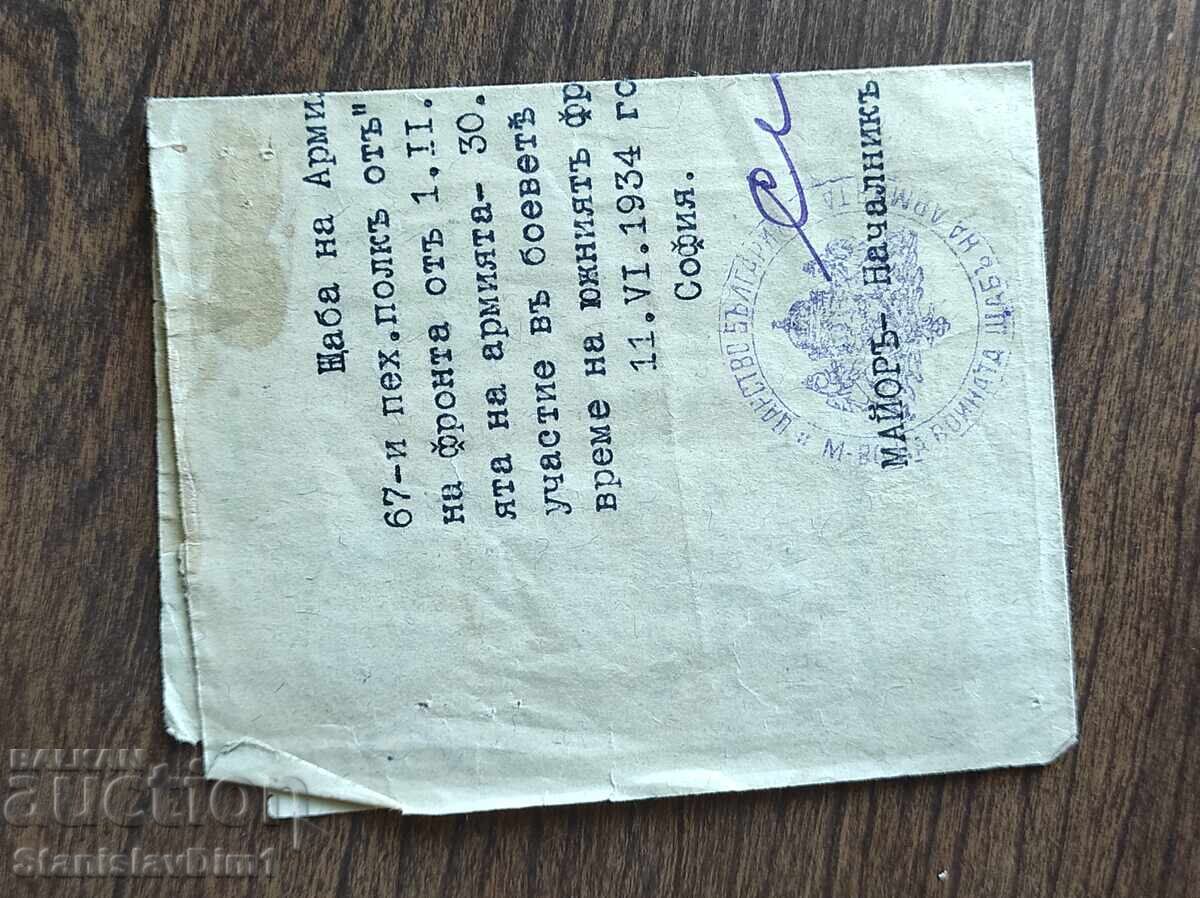 Щаба на Арми
67-и пех.полкъ отъ"
на фронта отъ 1.II.
ята на армията- 30.
участие въ боеветѣ
време на южниятъ фр
11.VI.1934 го
София.
МАЙОРЪ- Началникъ
ЦАРСТВО БЪЛГАРИЯ
ВОЙНАТА ЩАБЪ НА АРМ
BALKAN
auction
StanislavDim1